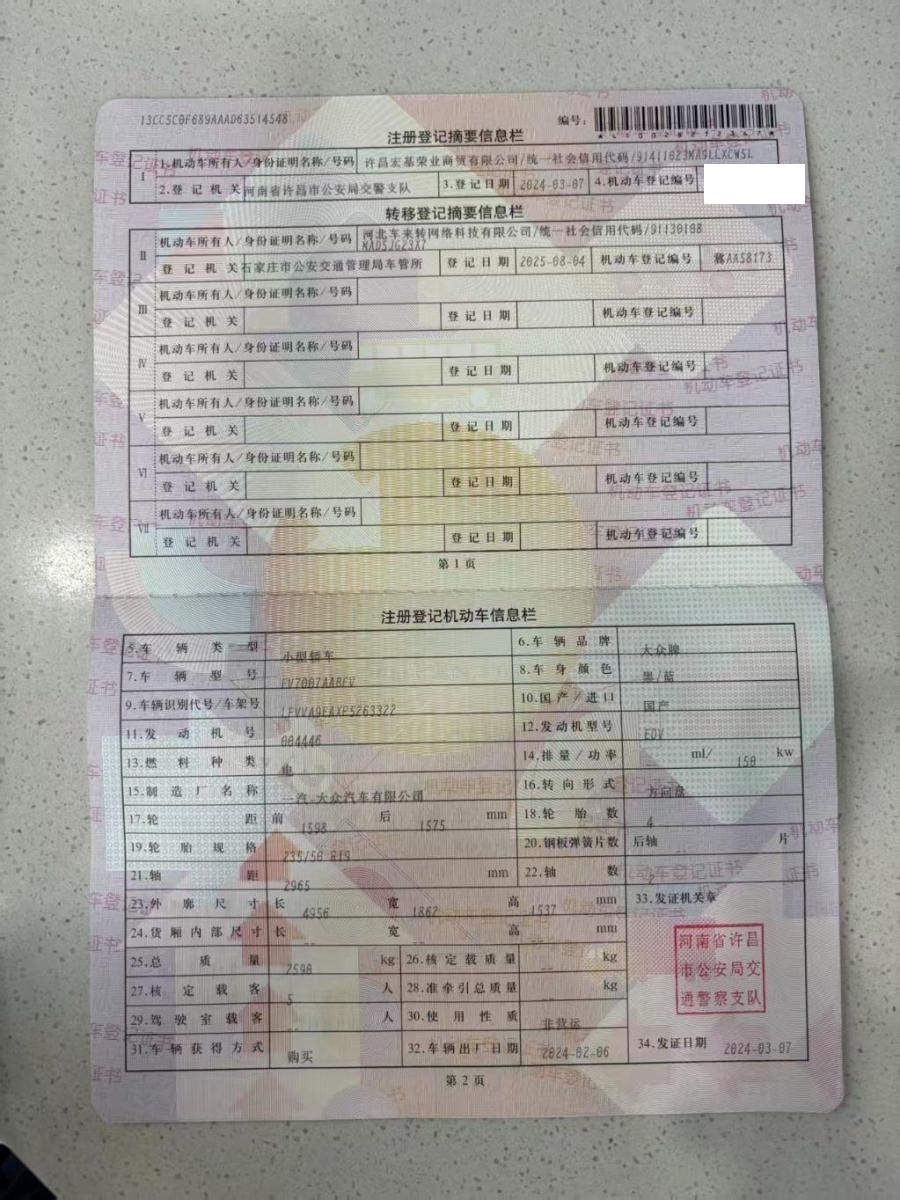 13CC5C0F689AAAD63514548 编号:
注册登记摘要信息栏
I 1.机动车所有人/身份证明名称/号码 许昌宏基荣业商贸有限公司/统一社会信用代码/91411023MA9LLXCW5L
2.登记机关 河南省许昌市公安局交警支队 3.登记日期 2024-03-07 4.机动车登记编号
转移登记摘要信息栏
II 机动车所有人/身份证明名称/号码 河北车来转网络科技有限公司/统一社会信用代码/91130108
MA05JG23X7
登记机关 石家庄市公安交通管理局车管所 登记日期 2025-08-04 机动车登记编号 冀AA58173
III 机动车所有人/身份证明名称/号码
登记机关 登记日期 机动车登记编号
IV 机动车所有人/身份证明名称/号码
登记机关 登记日期 机动车登记编号
V 机动车所有人/身份证明名称/号码
登记机关 登记日期 机动车登记编号
VI 机动车所有人/身份证明名称/号码
登记机关 登记日期 机动车登记编号
VII 机动车所有人/身份证明名称/号码
登记机关 登记日期 机动车登记编号
第1页
注册登记机动车信息栏
5.车辆类型 小型轿车 6.车辆品牌 大众牌
7.车辆型号 FV7007AABEV 8.车身颜色 黑/蓝
9.车辆识别代号/车架号 LFVVA9EAXP5263322 10.国产/进口 国产
11.发动机号 004446 12.发动机型号 EDV
13.燃料种类 电 14.排量/功率 ml/ 150 kw
15.制造厂名称 一汽-大众汽车有限公司 16.转向形式 方向盘
17.轮距 前 1598 后 1575 mm 18.轮胎数 4
19.轮胎规格 235/50 R19 20.钢板弹簧片数 后轴 片
21.轴距 2965 mm 22.轴数 2
23.外廓尺寸 长 4956 宽 1862 高 1537 mm 33.发证机关章
24.货厢内部尺寸 长 -- 宽 -- 高 -- mm
25.总质量 2590 kg 26.核定载质量 -- kg
27.核定载客 5 人 28.准牵引总质量 -- kg
29.驾驶室载客 -- 人 30.使用性质 非营运
河南省许昌
市公安局交
通警察支队
31.车辆获得方式 购买 32.车辆出厂日期 2024-02-06 34.发证日期 2024-03-07
第2页